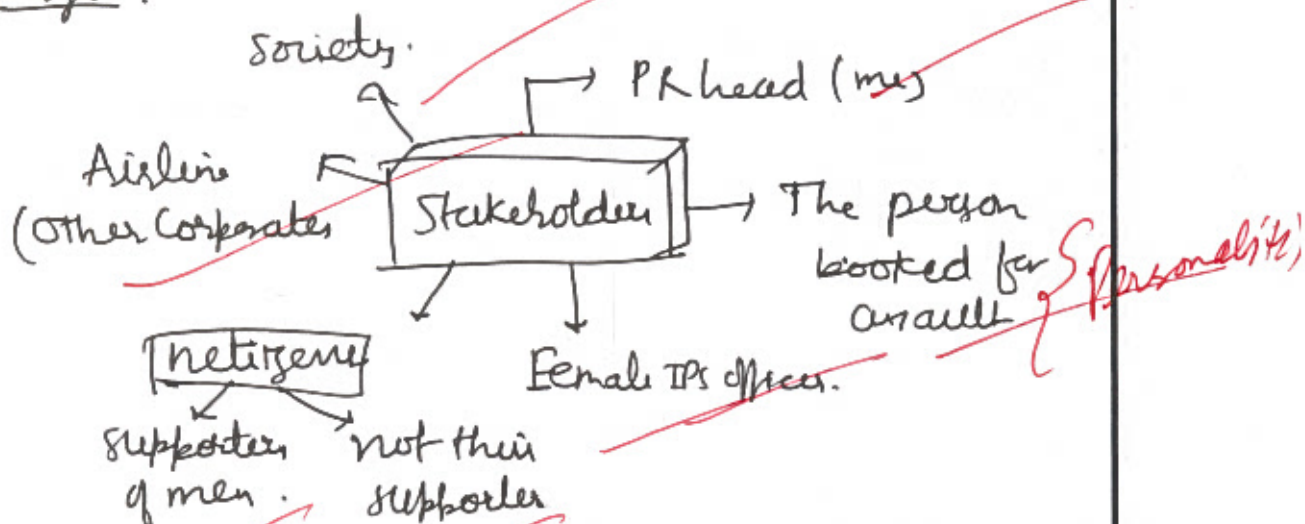 society.
PR head (me)
Airline
(Other Corporates
Stakeholder
The person
booked for
assault
Personalities
netizens
Female IPS officer.
supporters
of men.
not their
supporter